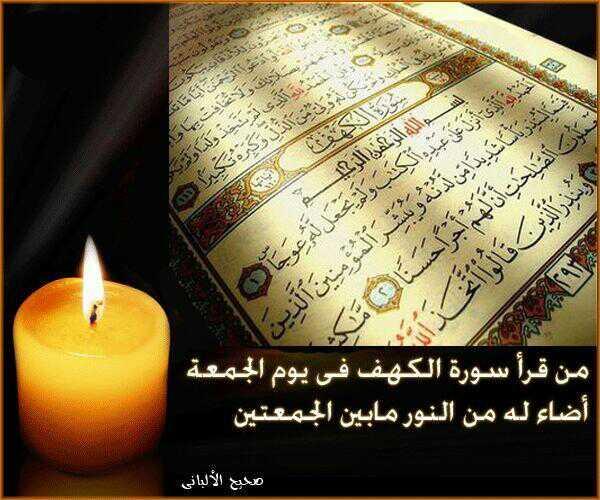 وَلَمْ يَكُن لَّهُ وَلِيٌّ مِّنَ الذُّلِّ وَكَبِّرْهُ تَكْبِيرًا
سُورَةُ الْكَهْفِ
بِسْمِ اللَّهِ الرَّحْمَٰنِ الرَّحِيمِ
الَّذِي أَنزَلَ عَلَىٰ عَبْدِهِ الْكِتَٰبَ وَلَمْ يَجْعَل لَّهُ عِوَجَا ١
لِّيُنذِرَ بَأْسًا شَدِيدًا مِّن لَّدُنْهُ وَيُبَشِّرَ الْمُؤْمِنِينَ الَّذِينَ
الصَّٰلِحَٰتِ أَنَّ لَهُمْ أَجْرًا حَسَنًا ٢ مَّٰكِثِينَ
وَيُنذِرَ الَّذِينَ قَالُوا اتَّخَذَ اللَّهُ
٢٩٣
من قرأ سورة الكهف فى يوم الجمعة
أضاء له من النور مابين الجمعتين
صحيح الألبانى